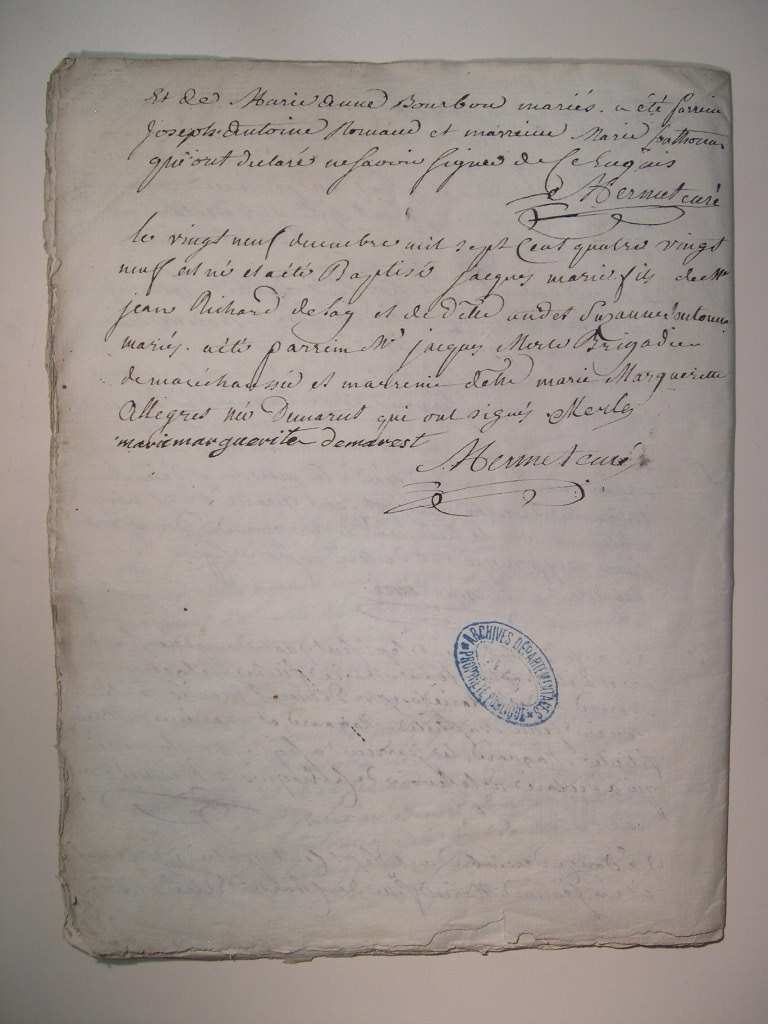 Et de Marie anne Bourbon mariés. a été parrein
joseph antoine Romand et marreine Marie
qui ont declaré ne savoir signer de ce
Hermet curé
le vingt neuf decembre mil sept Cent quatre vingt
neuf est né et a été Baptisé jacques marie fils de Mr
jean Richard de et de dlle Suzanne
mariés. a été parrein Mr jacques Merle Brigadier
de maréchaussée et marreine dlle marie Marguerite
Allegres née Demarest qui ont signés Merle
marie marguerite demarest
Hermet curé
*ARCHIVES DÉPARTEMENTALES*
PROPRIÉTÉ PUBLIQUE